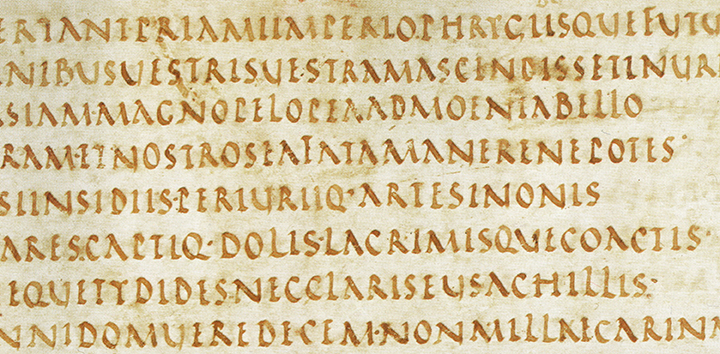 ERTANTPRIAMIIMPERIOPHRYGIISQUEFUTU
NIBUSUESTRISUESTRAMASCENDISSETINUR
ASIAM·MAGNOPELOPEAADMOENIABELLO
RAM·ETNOSTROSEAFATAMANERENEPOTES·
SIINSIDIIS·PERIURIIQ·ARTESINONIS
ARES·CAPTIQ·DOLIS·LACRIMISQUECOACTIS·
EQUETYDIDESNECCLARISEUSACHILLIS·
NNIDOMUEREDECEM·NONMILLECARIN